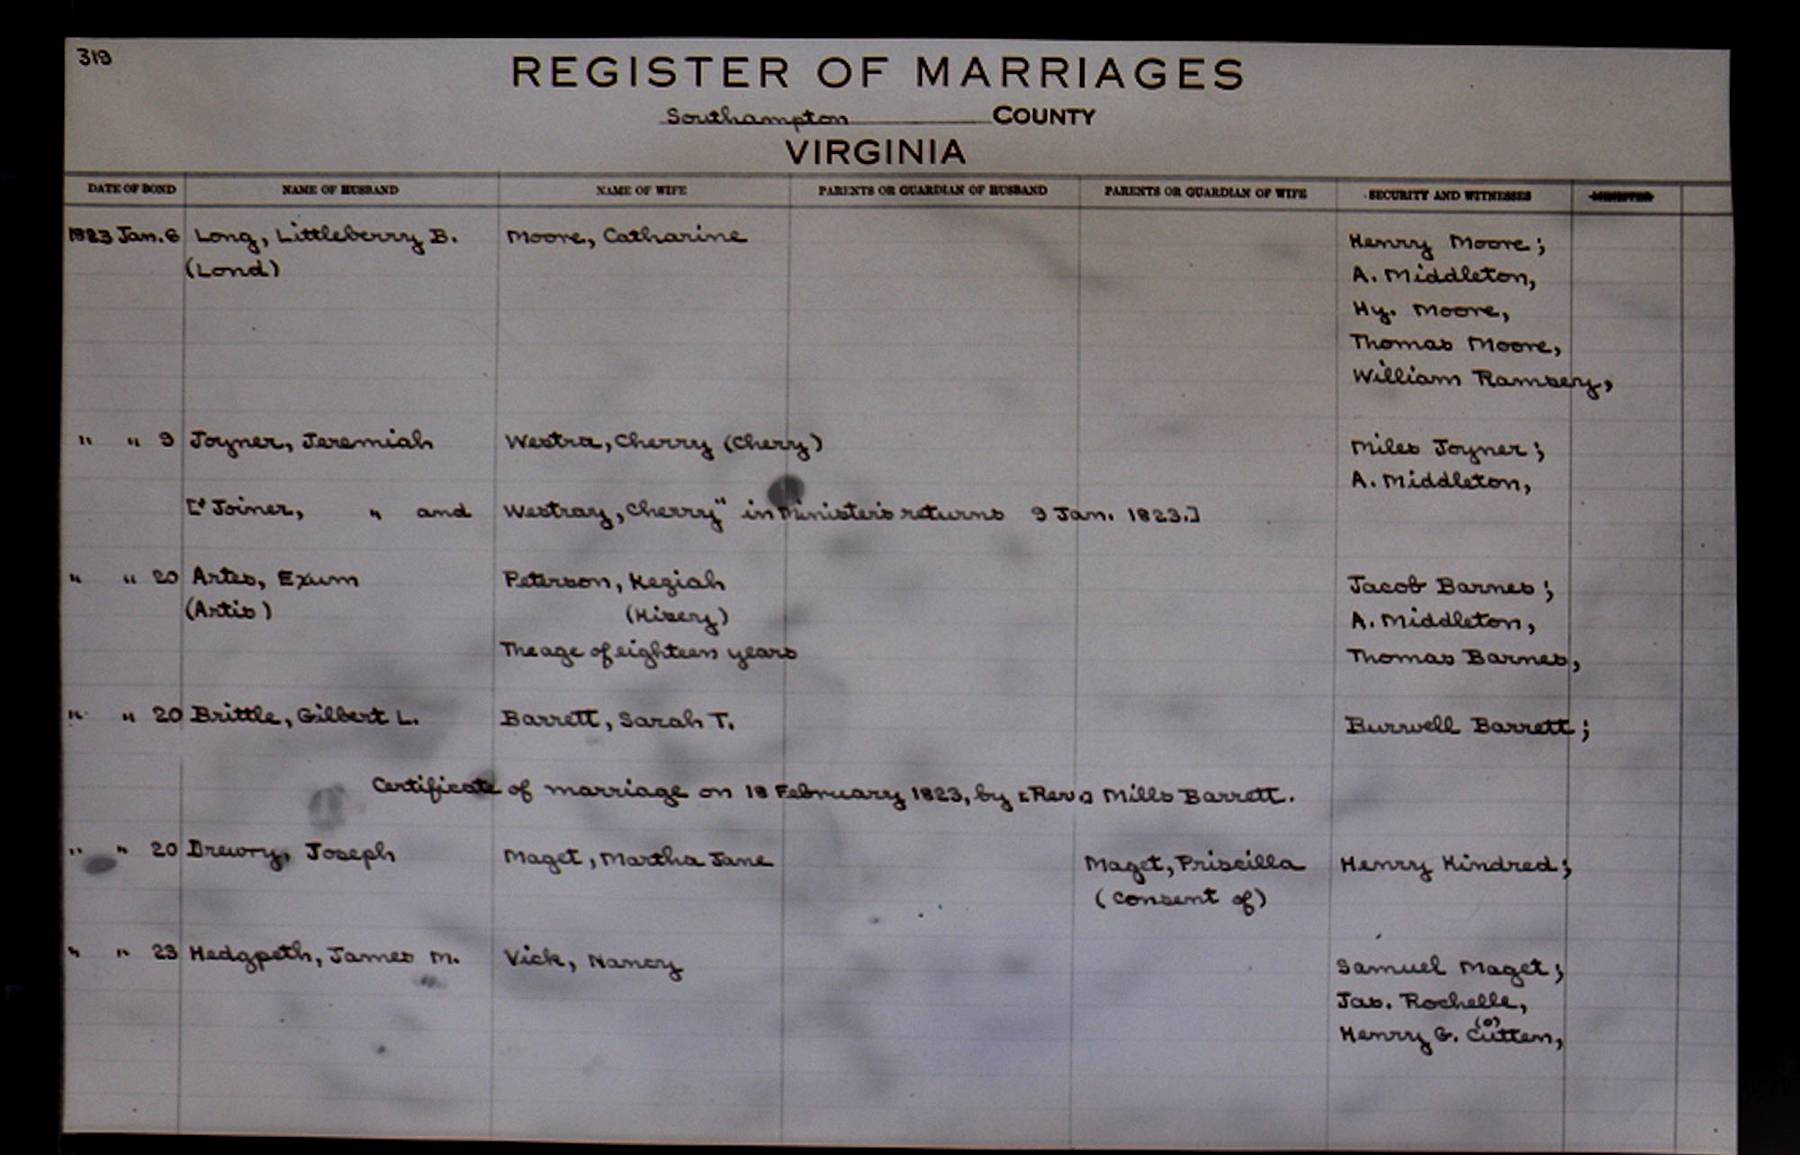 319
REGISTER OF MARRIAGES
Southampton COUNTY
VIRGINIA
DATE OF BOND NAME OF HUSBAND NAME OF WIFE PARENTS OR GUARDIAN OF HUSBAND PARENTS OR GUARDIAN OF WIFE SECURITY AND WITNESSES
1823 Jan. 6 Long, Littleberry B. Moore, Catharine Henry Moore;
(Lond) A. Middleton,
Hy. Moore,
Thomas Moore,
William Ramsery,
" " 9 Joyner, Jeremiah Westra, Cherry (Chery) Miles Joyner;
A. Middleton,
["Joiner, " and Westray, Cherry" in Minister's returns 9 Jan. 1823.]
" " 20 Artes, Exum Peterson, Keziah Jacob Barnes;
(Artis) (Kisery) A. Middleton,
The age of eighteen years Thomas Barnes,
" " 20 Brittle, Gilbert L. Barrett, Sarah T. Burwell Barrett;
Certificate of marriage on 18 February 1823, by [Rev.] Mills Barrett.
" " 20 Drewry, Joseph Maget, Martha Jane Maget, Priscilla Henry Kindred;
(Consent of)
" " 23 Hedgpeth, James M. Vick, Nancy Samuel Maget;
Jas. Rochelle,
(o)
Henry G. Cutten,